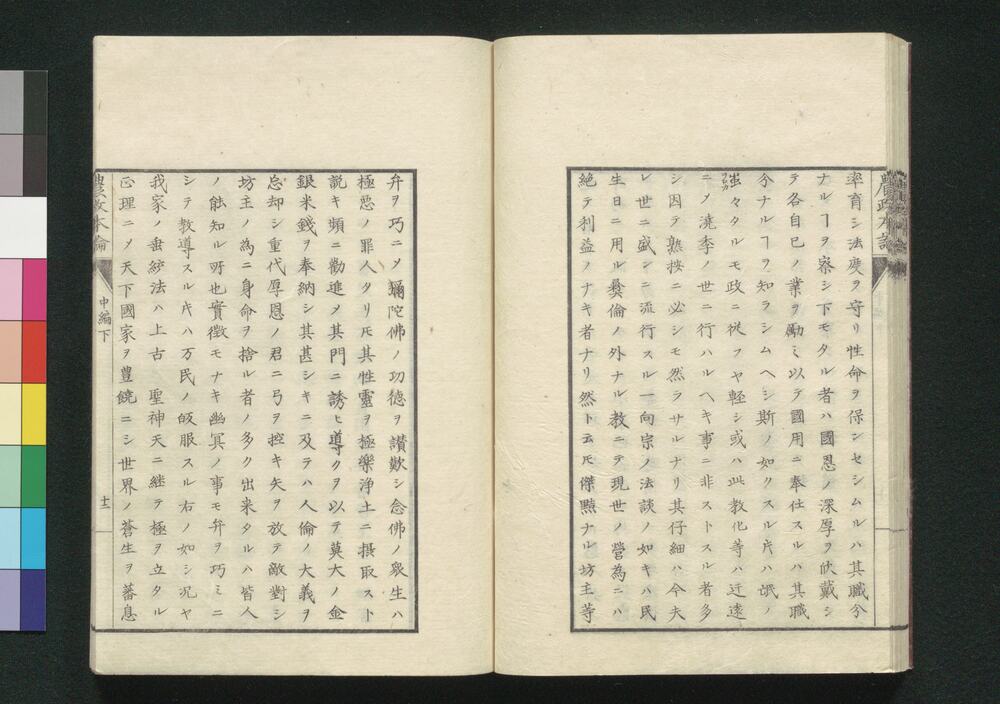 率育シ法度ヲ守リ性命ヲ保ンセシムルハ其職分
ナルヿヲ察シ下モタル者ハ國恩ノ深厚ヲ欣戴シ
テ各自已ノ業ヲ勵ミ以テ國用ニ奉仕スルハ其職
分ナルヿヲ知ラシムヘシ斯ノ如クスル片ハ氓ノ
蚩々タルモ政ニ從フヤ輕シ或ハ此教化等ハ迂遠
ニノ澆季ノ世ニ行ハルヘキ事ニ非ストスル者多
シ因テ熟按ニ必シモ然ラサルナリ其仔細ハ今夫
レ世ニ盛ンニ流行スル一向宗ノ法談ノ如キハ民
生日ニ用ル彜倫ノ外ナル教ニテ現世ノ營為ニハ
絶テ利益ノナキ者ナリ然ト云𪜈傑黠ナル坊主等
農政本論
中編下
十二
弁ヲ巧ニメ彌陀佛ノ功德ヲ讃歎シ念佛ノ衆生ハ
極惡ノ罪人タリ𪜈其性靈ヲ極樂浄土ニ摂取スト
説キ頻ニ勸進メ其門ニ誘ヒ導クヲ以テ莫大ノ金
銀米錢ヲ奉納シ其甚シキニ及テハ人倫ノ大義ヲ
忘却シ重代厚恩ノ君ニ弓ヲ控キ矢ヲ放テ敵對シ
坊主ノ為ニ身命ヲ捨ル者ノ多ク出来タルハ皆人
ノ能知ル所也實徴モナキ幽冥ノ事モ弁ヲ巧ミニ
シテ教導スル片ハ万民ノ皈服スル右ノ如シ况ヤ
我家ノ垂統法ハ上古 聖神天ニ継テ極ヲ立タル
正理ニメ天下國家ヲ豊饒ニシ世界ノ蒼生ヲ蕃息